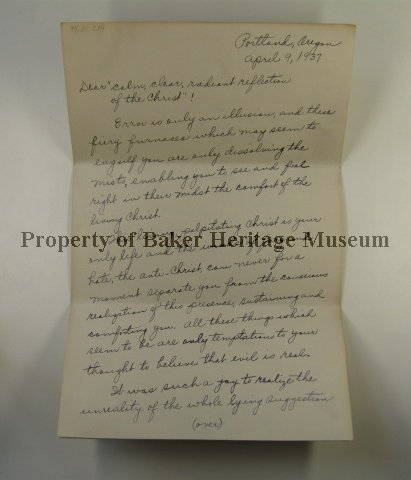 Portland, Oregon
April 9, 1937
Dear "calm, clear, radiant reflection
of the Christ"!
Error is only an illusion, and these
fiery furnaces which may seem to
engulf you are only dissolving the
mists, enabling you to see and feel
right in their midst the comfort of the
living Christ.
palpitating Christ is your
Property of Baker Heritage Museum
only life and the
hate, the anti-Christ, can never for a
moment separate you from the conscious
realization of this presence, sustaining and
comforting you. All these things which
seem to be are only temptations to your
thought to believe that evil is real.
It was such a joy to realize the
unreality of the whole lying suggestion
(over)